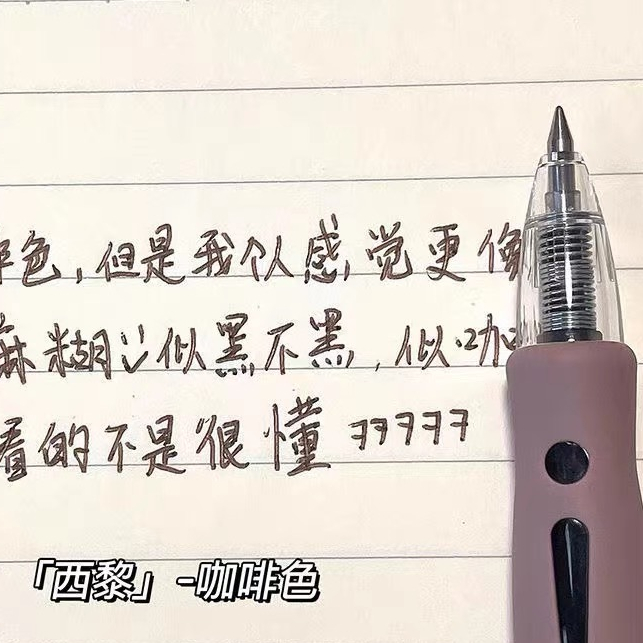 色,但是我个人感觉更像
麻糊::似黑不黑,似咖
看的不是很懂 77777
「西黎」-咖啡色